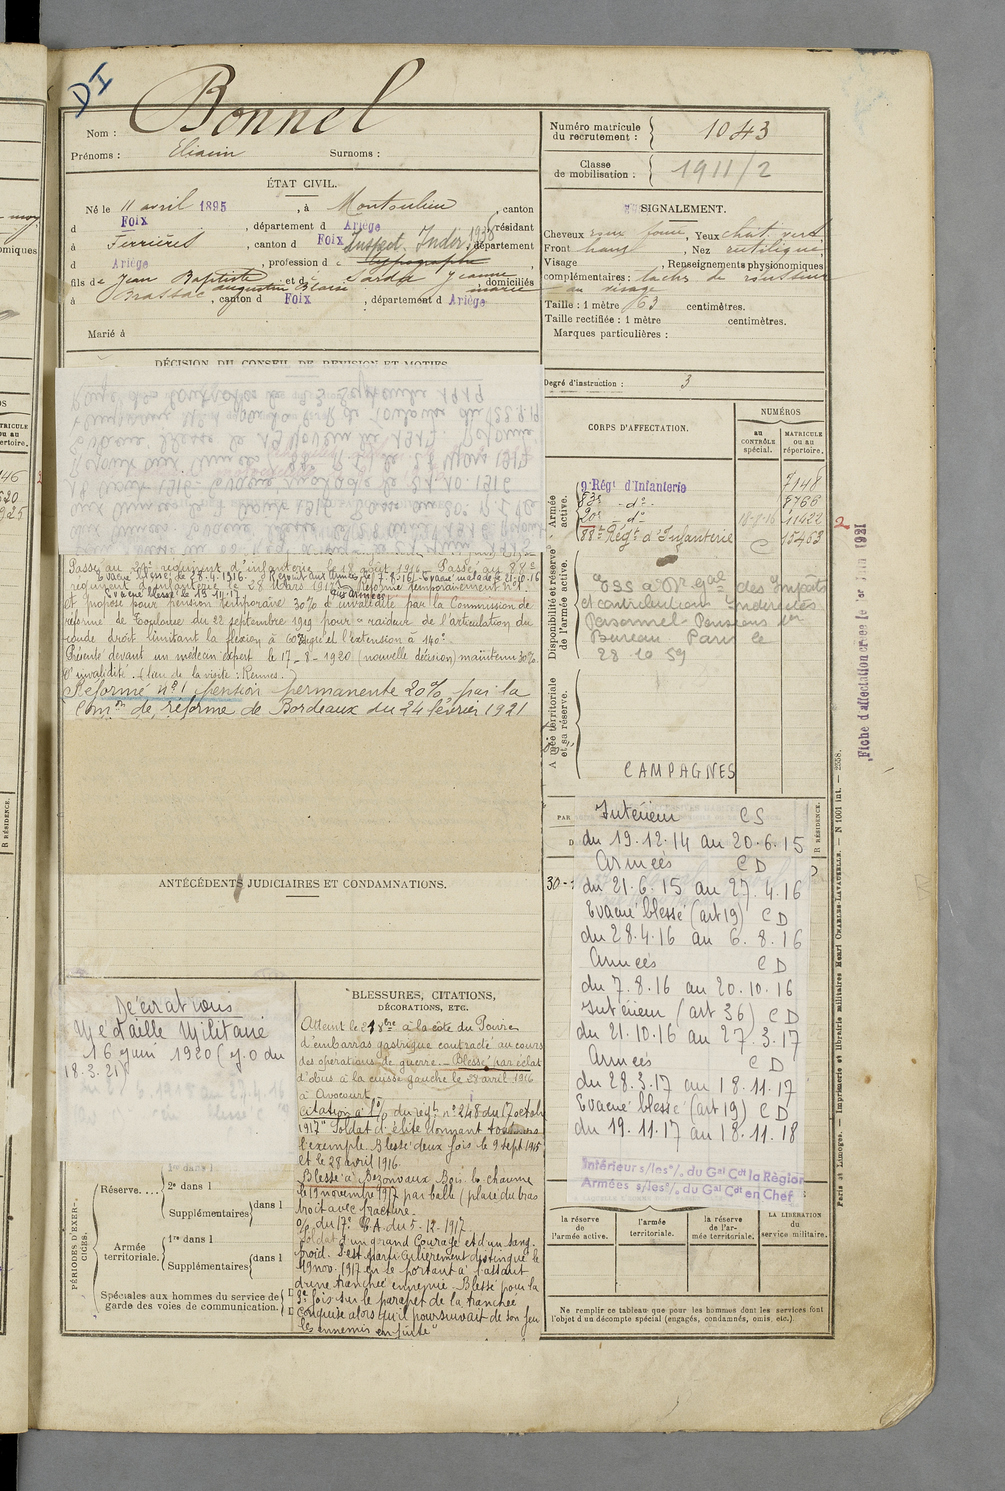 DI
Bonnel
Nom :
Prénoms : Eliacin Surnoms :
ÉTAT CIVIL.
Né le 11 avril 1895, à Montoulieu, canton
d Foix, département d Ariège, résidant
à Ferrières, canton d Foix, département
d Ariège, profession de typographe Inspect. Indir. 1938
fils de Jean Baptiste Augustin Blaise et de Jeanne Marie, domiciliés
à Brassac, canton d Foix, département d Ariège
Marié à
DÉCISION DU CONSEIL DE REVISION ET MOTIFS.
Passé au 20e régiment d'infanterie le 18 août 1916. Passé au 88e
Evacué blessé le 28.4.1916. Rejoint aux Armées le 7.8.16. Evacué malade le 21.10.16
régiment d'infanterie le 28 Mars 1917. Réformé temporairement n°1
Evacué blessé le 19.11.17
et proposé pour pension temporaire 30% d'invalidité par la Commission de
réforme de Toulouse du 22 septembre 1919 pour "raideur de l'articulation du
coude droit limitant la flexion à 60° et l'extension à 140°.
Présenté devant un médecin expert le 17-8-1920 (nouvelle décision) maintenu 30%
d'invalidité. (lieu de la visite : Rennes.)
Réformé n°1 pension permanente 20% par la
Comon de réforme de Bordeaux du 24 février 1921
ANTÉCÉDENTS JUDICIAIRES ET CONDAMNATIONS.
Décorations
Médaille Militaire
16 juin 1920 (J.O du
18.3.21)
1re dans l
Réserve.... 2e dans l
Supplémentaires dans l
PÉRIODES D'EXERCICES.
Armée territoriale. 1re dans l
Supplémentaires dans l
Spéciales aux hommes du service de
garde des voies de communication.
BLESSURES, CITATIONS,
DÉCORATIONS, ETC.
Atteint le à la côte du Poivre
d'embarras gastrique contracté au cours
des opérations de guerre. – Blessé par éclat
d'obus à la cuisse gauche le 28 avril 1916
à Avocourt.
Citation à l'o/ du régt n° 248 du 17 octobre
1917 "Soldat d'élite donnant toujours
l'exemple. Blessé deux fois le 9 sept 1915
et le 28 avril 1916.
Blessé à Bezonvaux Bois le chaume
le 19 novembre 1917 par balle (plaie du bras
droit avec fracture.
o/ du 17e CA du 5-12-1917.
Soldat d'un grand courage et d'un sang
froid. S'est particulièrement distingué le
19 nov. 1917 en se portant à l'assaut
d'une tranchée ennemie. Blessé pour la
3e fois sur le parapet de la tranchée
conquise alors qu'il poursuivait de son feu
les ennemis en fuite"
Numéro matricule
du recrutement : 1043
Classe
de mobilisation : 1911/2
SIGNALEMENT.
Cheveux foncé, Yeux chat. vert
Front haut, Nez rectiligne,
Visage , Renseignements physionomiques
complémentaires : tache de rousseur
au visage
Taille : 1 mètre 63 centimètres.
Taille rectifiée : 1 mètre centimètres.
Marques particulières :
Degré d'instruction : 3
CORPS D'AFFECTATION.
NUMÉROS
au
CONTRÔLE
spécial.
MATRICULE
ou au
répertoire.
Armée
active.
9e Régt d'Infanterie 7148
83e -d°- 8766
20e d° 18-8-16 11422
88me Régt d'Infanterie 15463
2
Disponibilité et réserve
de l'armée active.
des Impôts
et contributions Indirectes
Personnel-Pensions 1er
Bureau Paris le
28 10 59
Armée territoriale
et sa réserve.
CAMPAGNES
Intérieur CS
du 19.12.14 au 20.6.15
Armées CD
du 21.6.15 au 27.4.16
Evacué blessé (art 19) CD
du 28.4.16 au 6.8.16
Armées CD
du 7.8.16 au 20.10.16
Intérieur (art 36) CD
du 21.10.16 au 27.3.17
Armées CD
du 28.3.17 au 18.11.17
Evacué blessé (art 19) CD
du 19.11.17 au 18.11.18
Intérieur s/les o/. du Gal Cdt la Région
Armées s/les o/. du Gal Cdt en Chef
la réserve
de
l'armée active.
l'armée
territoriale.
la réserve
de l'ar-
mée territoriale.
LA LIBÉRATION
du
service militaire.
Ne remplir ce tableau que pour les hommes dont les services font
l'objet d'un décompte spécial (engagés, condamnés, omis, etc.)
Fiche d'affectation créée le 1er Juin 1921
Paris et Limoges. — Imprimerie et librairie militaires Henri CHARLES-LAVAUZELLE. — N 1601 int. — 2558.
R RÉSIDENCE.